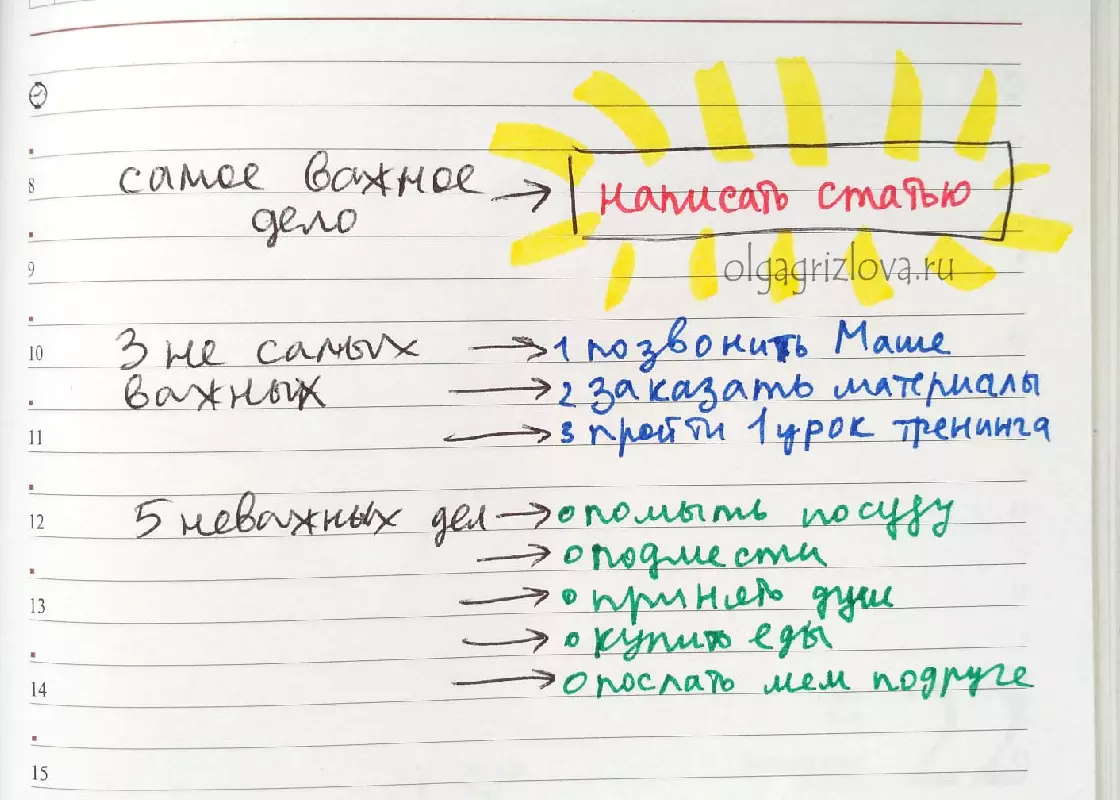 8 самое важное → написать статью
дело
olgagrizlova.ru
9
10 3 не самых → 1 позвонить Маше
важных → 2 заказать материалы
11 → 3 пройти 1 урок тренинга
12 5 неважных дел → o помыть посуду
→ o подмести
13 → o принять душ
→ o купить еды
14 → o послать мем подруге
15